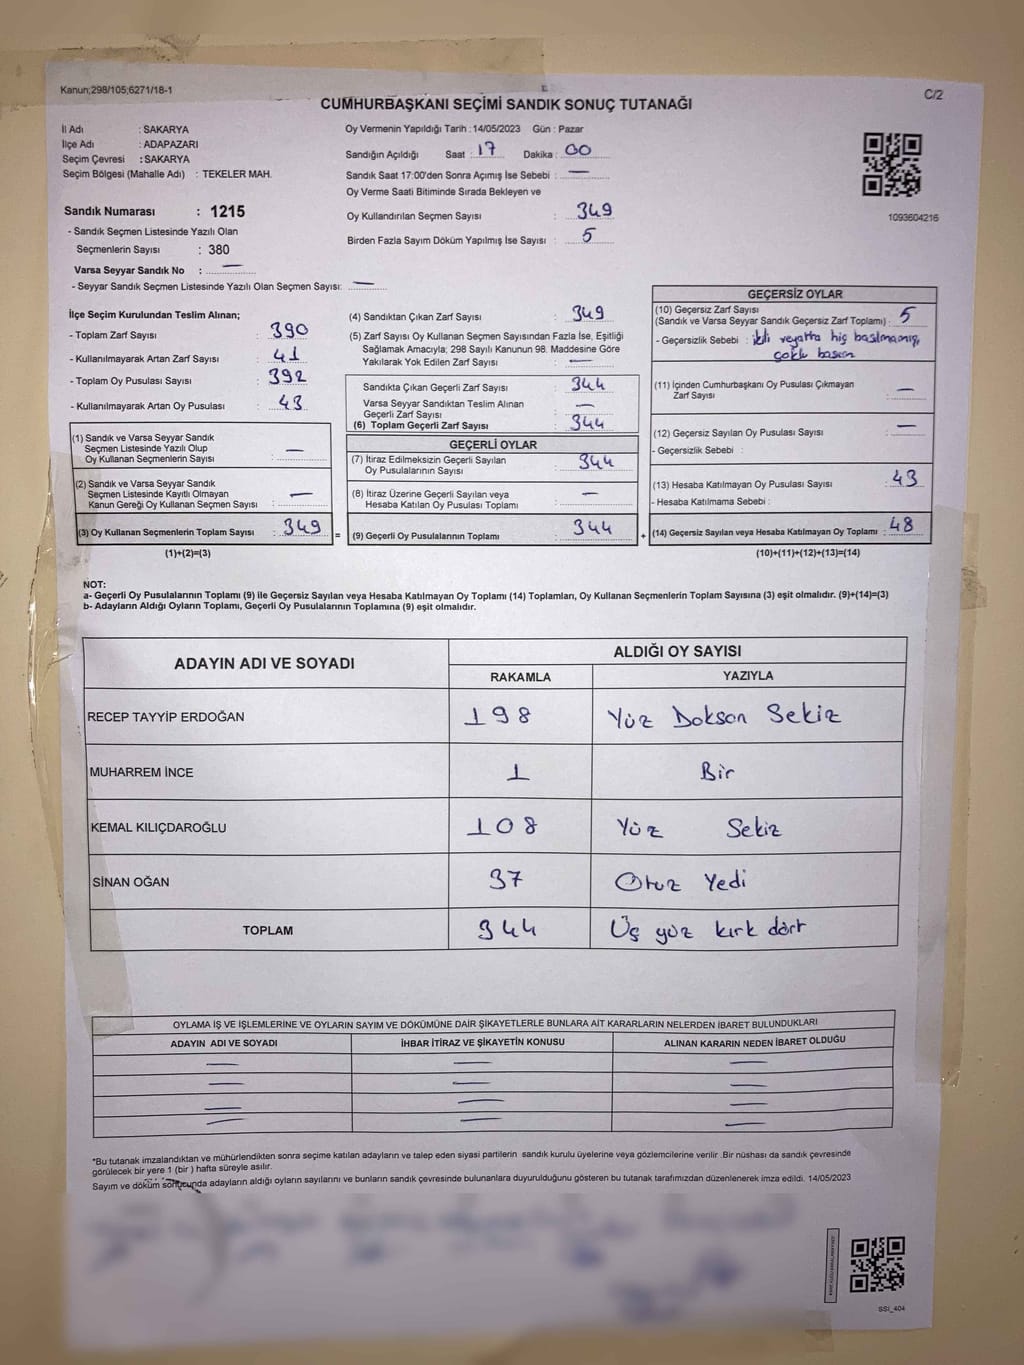 Kanun;298/105;6271/18-1
C/2
CUMHURBAŞKANI SEÇİMİ SANDIK SONUÇ TUTANAĞI
İl Adı : SAKARYA
İlçe Adı : ADAPAZARI
Seçim Çevresi : SAKARYA
Seçim Bölgesi (Mahalle Adı) : TEKELER MAH.
Sandık Numarası : 1215
- Sandık Seçmen Listesinde Yazılı Olan
Seçmenlerin Sayısı : 380
Varsa Seyyar Sandık No : —
- Seyyar Sandık Seçmen Listesinde Yazılı Olan Seçmen Sayısı: —
Oy Vermenin Yapıldığı Tarih : 14/05/2023 Gün : Pazar
Sandığın Açıldığı Saat : 17 Dakika : 00
Sandık Saat 17:00'den Sonra Açımış İse Sebebi : —
Oy Verme Saati Bitiminde Sırada Bekleyen ve
Oy Kullandırılan Seçmen Sayısı : 349
Birden Fazla Sayım Döküm Yapılmış İse Sayısı : 5
1093604216
İlçe Seçim Kurulundan Teslim Alınan;
- Toplam Zarf Sayısı : 390
- Kullanılmayarak Artan Zarf Sayısı : 41
- Toplam Oy Pusulası Sayısı : 392
- Kullanılmayarak Artan Oy Pusulası : 43
(1) Sandık ve Varsa Seyyar Sandık
Seçmen Listesinde Yazılı Olup
Oy Kullanan Seçmenlerin Sayısı : —
(2) Sandık ve Varsa Seyyar Sandık
Seçmen Listesinde Kayıtlı Olmayan
Kanun Gereği Oy Kullanan Seçmen Sayısı : —
(3) Oy Kullanan Seçmenlerin Toplam Sayısı : 349
(1)+(2)=(3)
=
(4) Sandıktan Çıkan Zarf Sayısı : 349
(5) Zarf Sayısı Oy Kullanan Seçmen Sayısından Fazla İse, Eşitliği
Sağlamak Amacıyla; 298 Sayılı Kanunun 98. Maddesine Göre
Yakılarak Yok Edilen Zarf Sayısı : —
Sandıkta Çıkan Geçerli Zarf Sayısı : 344
Varsa Seyyar Sandıktan Teslim Alınan
Geçerli Zarf Sayısı : —
(6) Toplam Geçerli Zarf Sayısı : 344
GEÇERLİ OYLAR
(7) İtiraz Edilmeksizin Geçerli Sayılan
Oy Pusulalarının Sayısı : 344
(8) İtiraz Üzerine Geçerli Sayılan veya
Hesaba Katılan Oy Pusulası Toplamı : —
(9) Geçerli Oy Pusulalarının Toplamı : 344
+
GEÇERSİZ OYLAR
(10) Geçersiz Zarf Sayısı
(Sandık ve Varsa Seyyar Sandık Geçersiz Zarf Toplamı) : 5
- Geçersizlik Sebebi : hiç basılmamış,
çoklu
(11) İçinden Cumhurbaşkanı Oy Pusulası Çıkmayan
Zarf Sayısı : —
(12) Geçersiz Sayılan Oy Pusulası Sayısı : —
- Geçersizlik Sebebi :
(13) Hesaba Katılmayan Oy Pusulası Sayısı : 43
- Hesaba Katılmama Sebebi :
(14) Geçersiz Sayılan veya Hesaba Katılmayan Oy Toplamı : 48
(10)+(11)+(12)+(13)=(14)
NOT:
a- Geçerli Oy Pusulalarının Toplamı (9) ile Geçersiz Sayılan veya Hesaba Katılmayan Oy Toplamı (14) Toplamları, Oy Kullanan Seçmenlerin Toplam Sayısına (3) eşit olmalıdır. (9)+(14)=(3)
b- Adayların Aldığı Oyların Toplamı, Geçerli Oy Pusulalarının Toplamına (9) eşit olmalıdır.
ADAYIN ADI VE SOYADI ALDIĞI OY SAYISI
RAKAMLA YAZIYLA
RECEP TAYYİP ERDOĞAN 198 Yüz Dokson Sekiz
MUHARREM İNCE 1 Bir
KEMAL KILIÇDAROĞLU 108 Yüz Sekiz
SİNAN OĞAN 37 Otuz Yedi
TOPLAM 344 Üç yüz kırk dört
OYLAMA İŞ VE İŞLEMLERİNE VE OYLARIN SAYIM VE DÖKÜMÜNE DAİR ŞİKAYETLERLE BUNLARA AİT KARARLARIN NELERDEN İBARET BULUNDUKLARI
ADAYIN ADI VE SOYADI İHBAR İTİRAZ VE ŞİKAYETİN KONUSU ALINAN KARARIN NEDEN İBARET OLDUĞU
— — —
— — —
— — —
— — —
*Bu tutanak imzalandıktan ve mühürlendikten sonra seçime katılan adayların ve talep eden siyasi partilerin sandık kurulu üyelerine veya gözlemcilerine verilir .Bir nüshası da sandık çevresinde
görülecek bir yere 1 (bir ) hafta süreyle asılır.
Sayım ve döküm sonucunda adayların aldığı oyların sayılarını ve bunların sandık çevresinde bulunanlara duyurulduğunu gösteren bu tutanak tarafımızdan düzenlenerek imza edildi. 14/05/2023
SSI_404